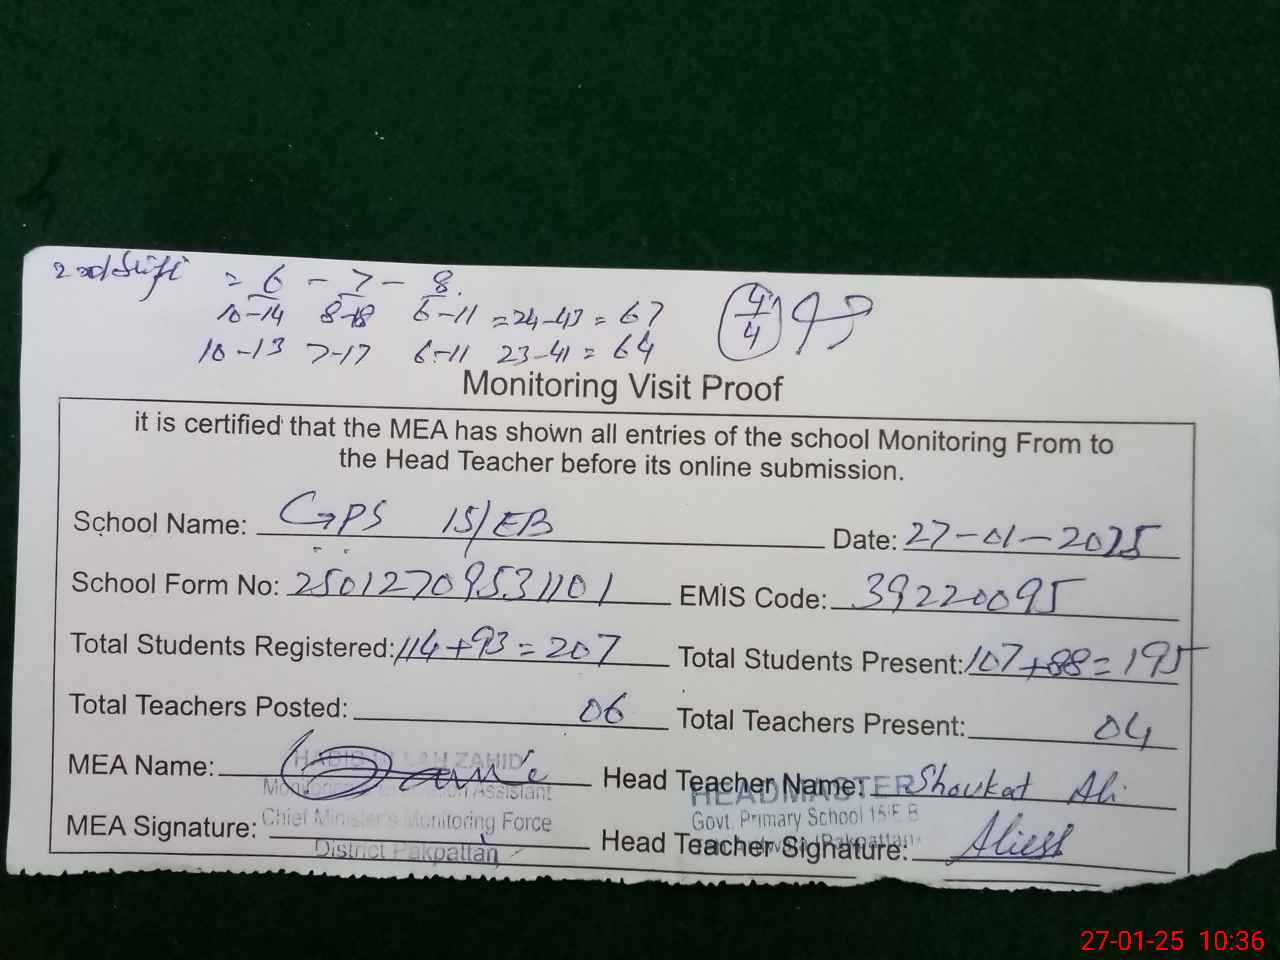 2nd Shift = 6 - 7 - 8
10-14 8-18 6-11 = 24-43 = 67
10-13 7-17 6-11 23-41 = 64
4/4
Monitoring Visit Proof
it is certified that the MEA has shown all entries of the school Monitoring From to
the Head Teacher before its online submission.
School Name: GPS 15/EB Date: 27-01-2025
School Form No: 25012709531101 EMIS Code: 39220095
Total Students Registered: 114+93=207 Total Students Present: 107+88=195
Total Teachers Posted: 06 Total Teachers Present: 04
MEA Name: Head Teacher Name: Shoukat Ali
HABIB ULLAH ZAHID
Monitoring Evaluation Assistant
Chief Minister's Monitoring Force
District Pakpattan
HEADMASTER
Govt. Primary School 15 E.B
Pakpattan
MEA Signature: Head Teacher Signature:
27-01-25 10:36